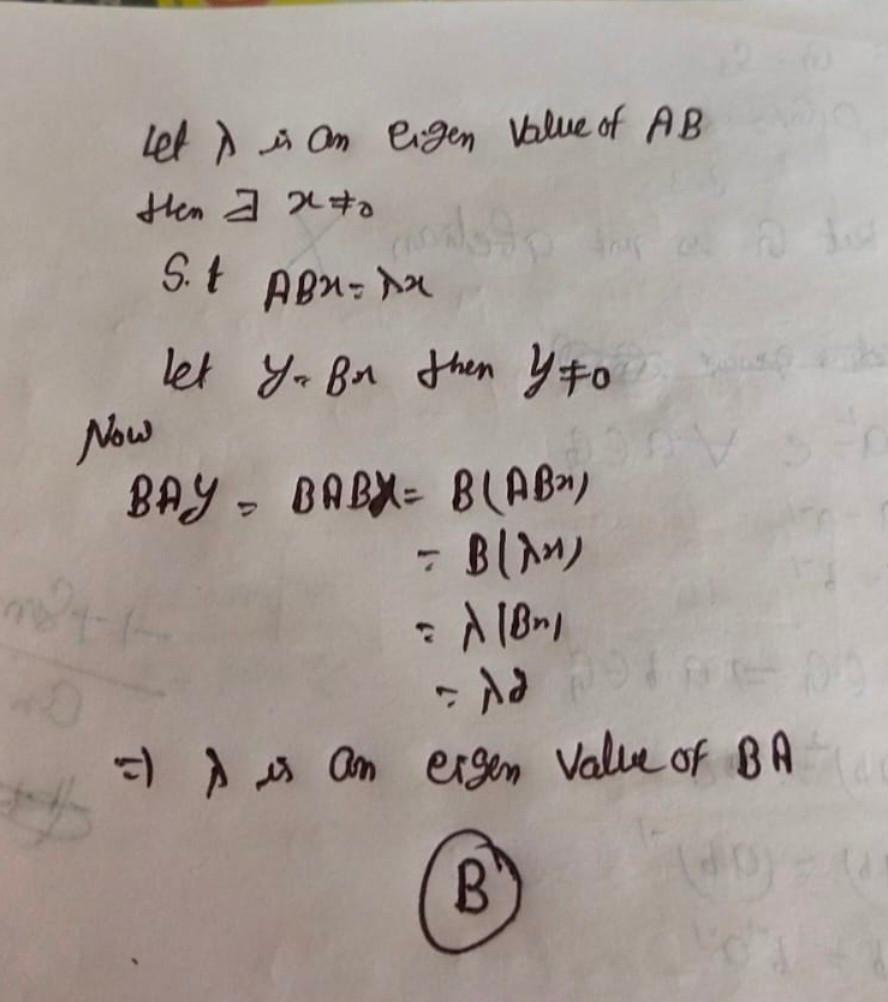 Let λ is an eigen value of AB
then ∃ x≠0
S.t ABx = λx
let y = Bx then y≠0
Now
BAy = BABx = B(ABx)
= B(λx)
= λ(Bx)
= λy
=) λ is an eigen value of BA
B